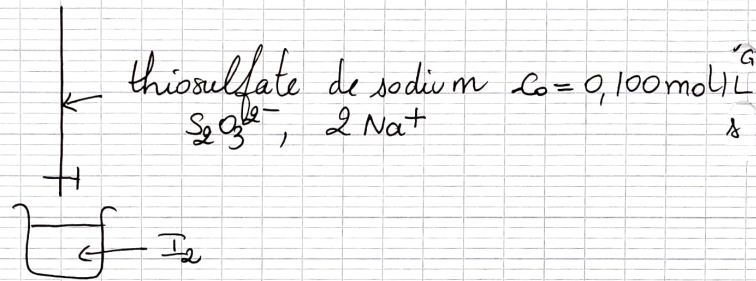 thiosulfate de sodium C₀ = 0,100 mol/L
S₂O₃²⁻, 2 Na⁺
I₂